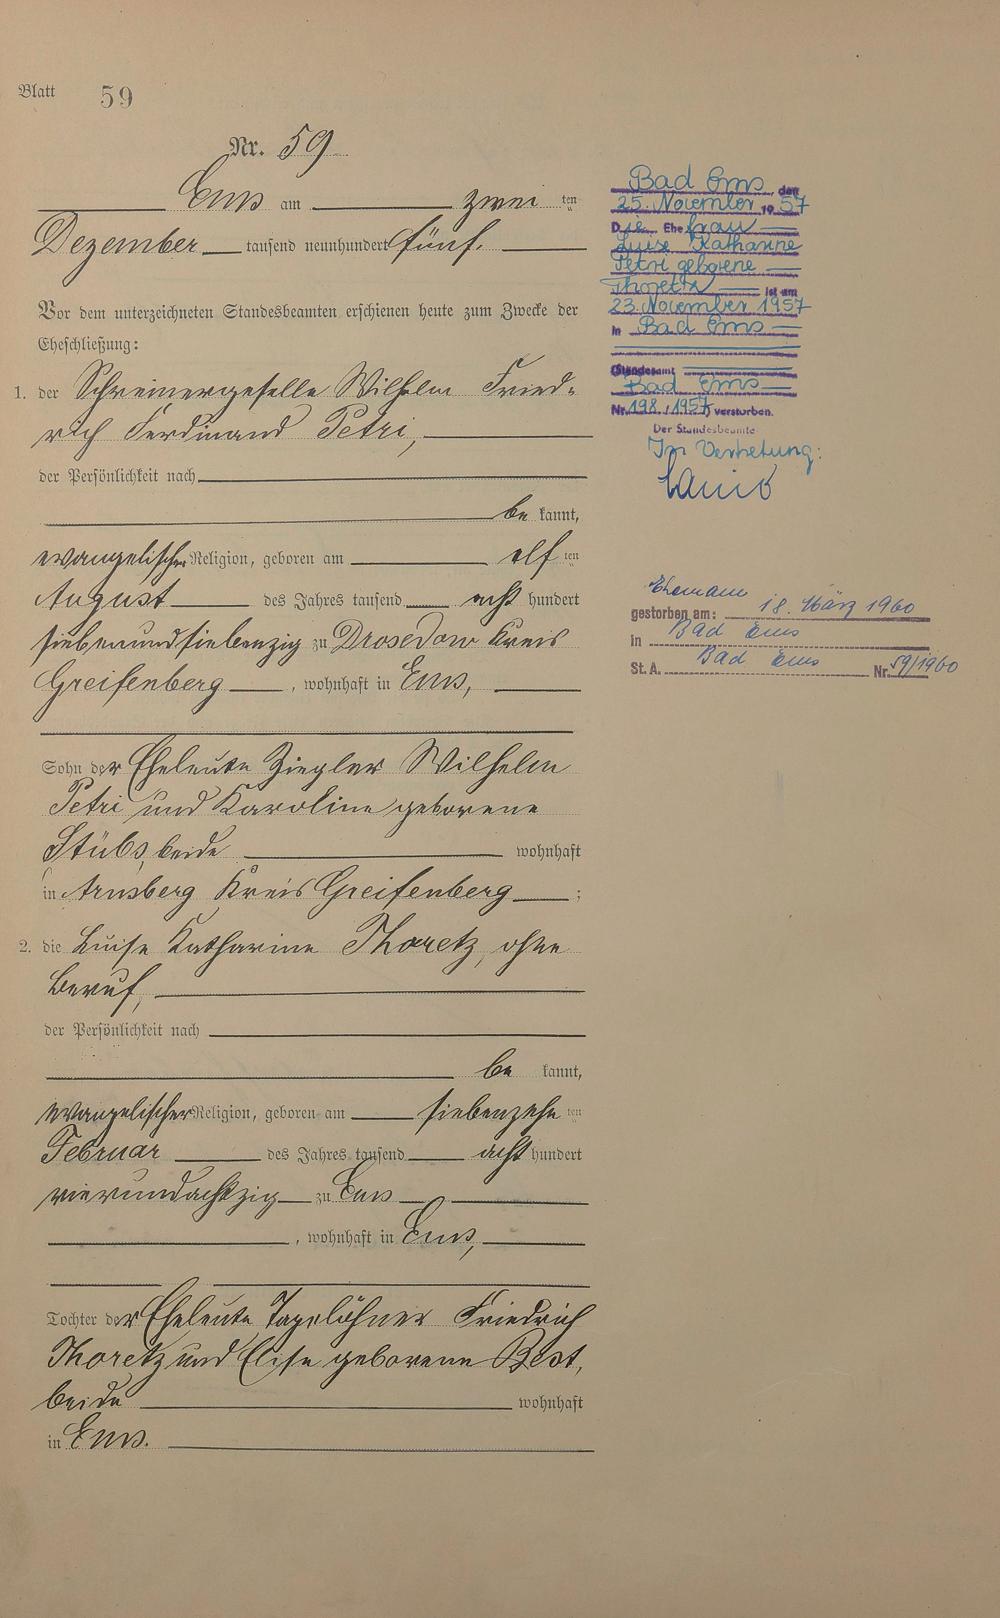 Blatt 59
Nr. 59
Ems am zwei ten
Dezember tausend neunhundert fünf.
Vor dem unterzeichneten Standesbeamten erschienen heute zum Zwecke der
Eheschließung:
1. der Schreinergeselle Wilhelm Fried-
rich Ferdinand Petri,
der Persönlichkeit nach
be kannt,
evangelischer Religion, geboren am elf ten
August des Jahres tausend acht hundert
siebenundsiebenzig zu Drosedow Kreis
Greifenberg, wohnhaft in Ems,
Sohn der Eheleute Ziegler Wilhelm
Petri und Karoline geborene
Stübs, beide wohnhaft
in Arnsberg Kreis Greifenberg;
2. die Luise Katharine Thoretz, ohne
Beruf,
der Persönlichkeit nach
be kannt,
evangelischer Religion, geboren am siebenzehn ten
Februar des Jahres tausend acht hundert
vierundachtzig zu Ems
, wohnhaft in Ems,
Tochter der Eheleute Tagelöhner Friedrich
Thoretz und Elise geborene Best,
beide wohnhaft
in Ems.
Bad Ems, den
25. November 1957
Die Ehefrau
Luise Katharine
Petri geborene
Thoretz ist am
23. November 1957
in Bad Ems
(Standesamt
Bad Ems
Nr. 198/1957) verstorben.
Der Standesbeamte
In Vertretung:
Ehemann
gestorben am: 18. März 1960
in Bad Ems
St. A. Bad Ems Nr. 59/1960